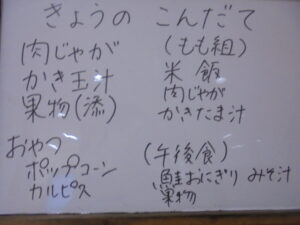 きょうの こんだて
肉じゃが
かき玉汁
果物(添)
(もも組)
米飯
肉じゃが
かきたま汁
おやつ
ポップコーン
カルピス
(午後食)
鮭おにぎり みそ汁
果物